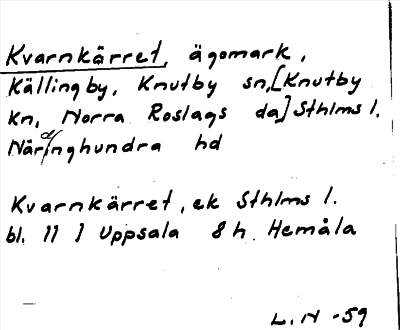 Kvarnkärret, ägomark,
Källingby, Knutby sn,[Knutby
kn, Norra Roslags da] Sthlms l.
Närdinghundra hd
Kvarnkärret, ek Sthlms l.
bl. 11 I Uppsala 8h Hemåla
L.N -59